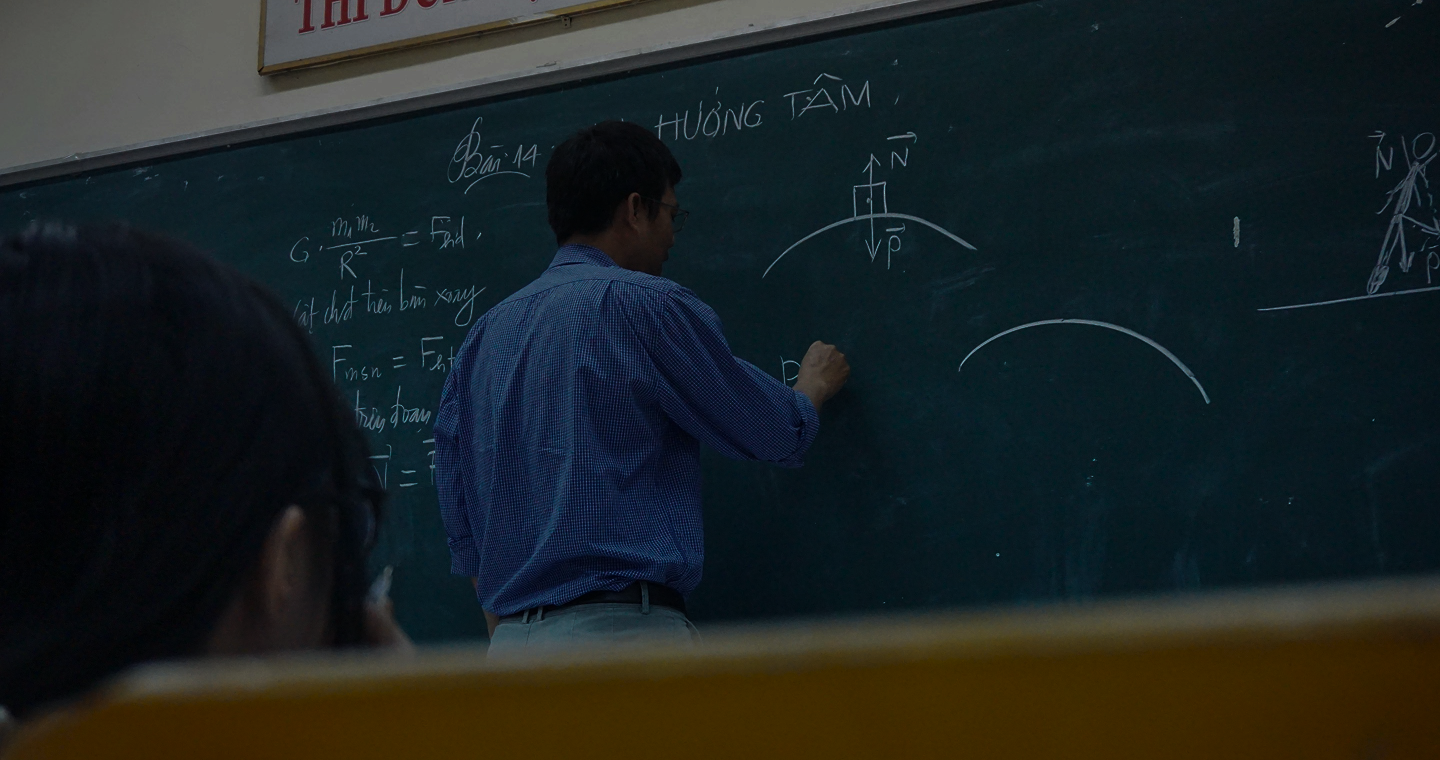 THI
Bài 14 HƯỚNG TÂM
G. m₁m₂/R² = Fhd.
vật chất trên bàn xoay
Fmsn = Fht
trên đoạn
N =
N
P
P
N
P